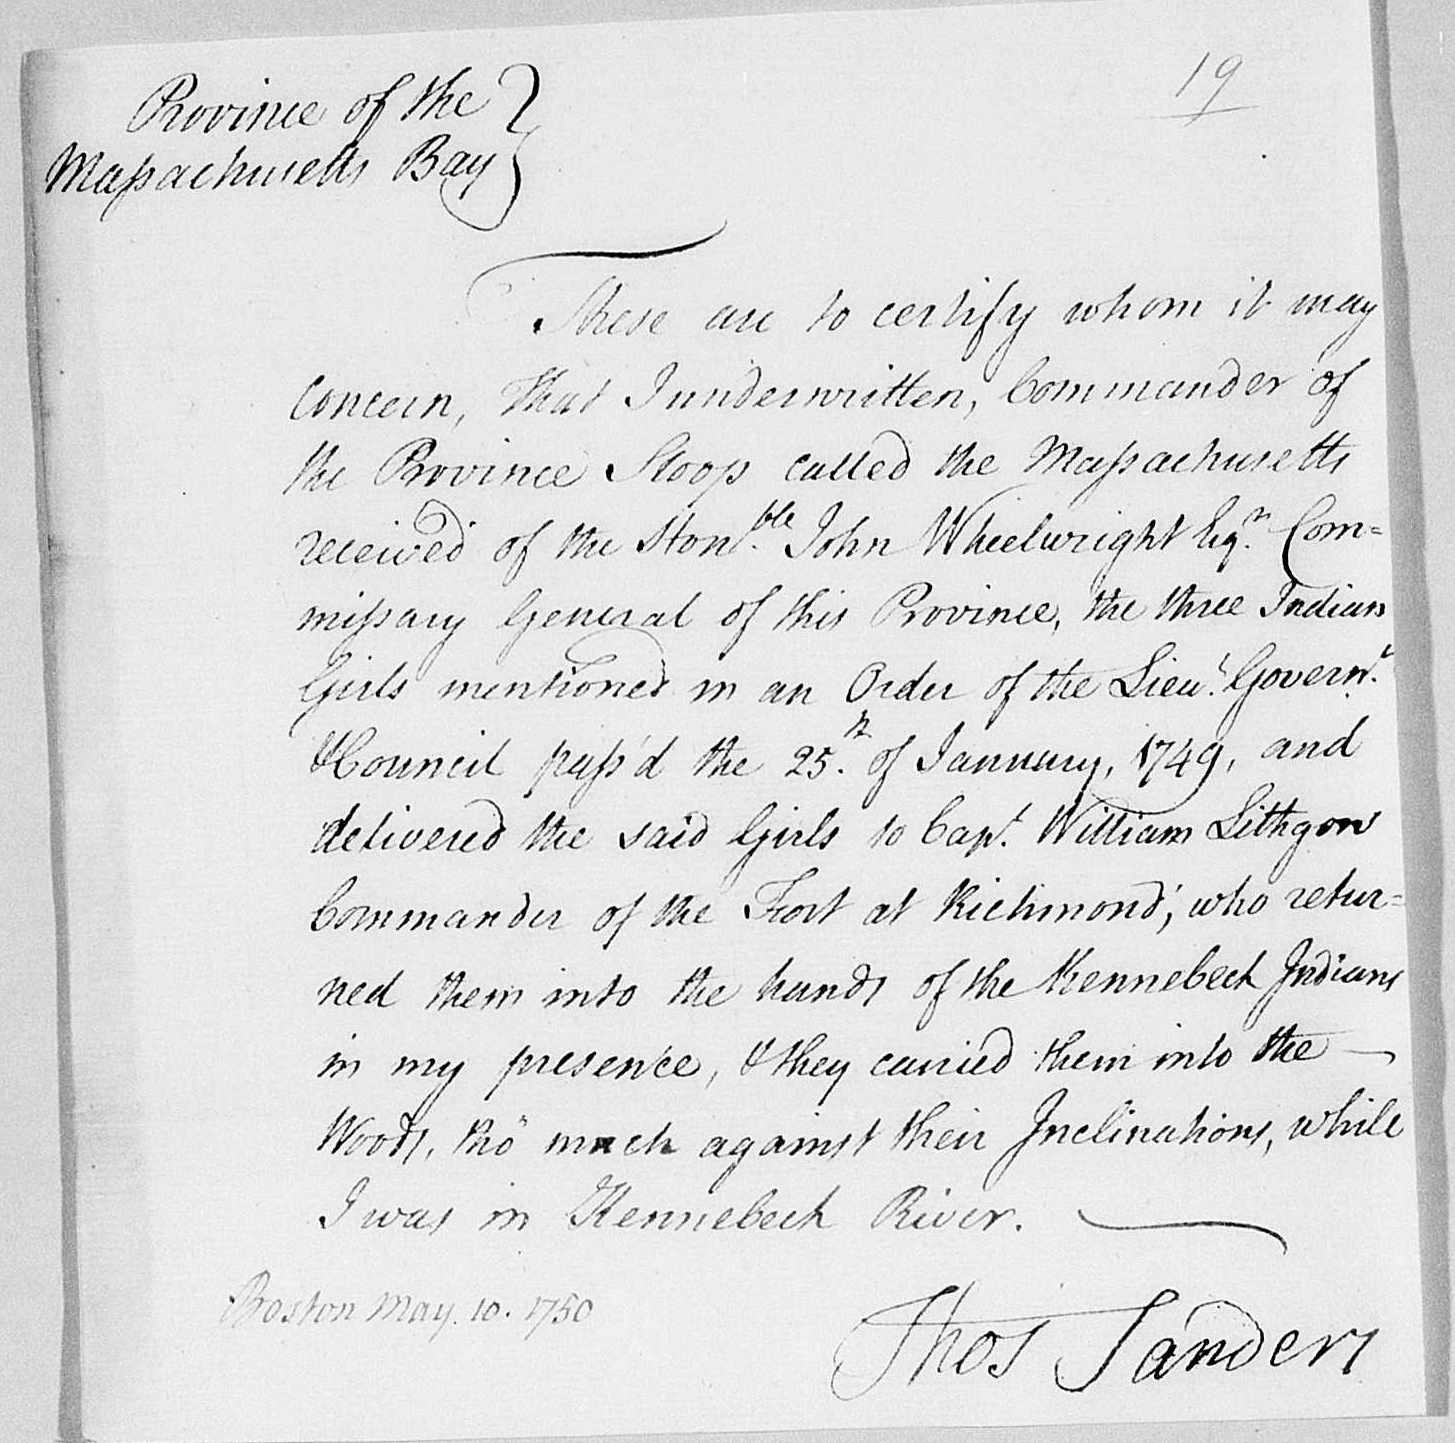 19
Province of the
Massachusetts Bay
These are to certify whom it may
concern, That I underwritten, Commander of
the Province Sloop called the Massachusetts
received of the Hon.ble John Wheelwright Esq.r Com=
missary General of this Province, the three Indian
Girls mentioned in an Order of the Lieu.t Govern.r
& Council pass'd the 25.th of January, 1749, and
delivered the said Girls to Cap.t William Lithgow
Commander of the Fort at Richmond; who retur=
ned them into the hands of the Kennebeck Indians
in my presence, & they carried them into the
Woods, tho' much against their Inclinations, while
I was in Kennebeck River.
Boston May. 10. 1750
Thos Sanders